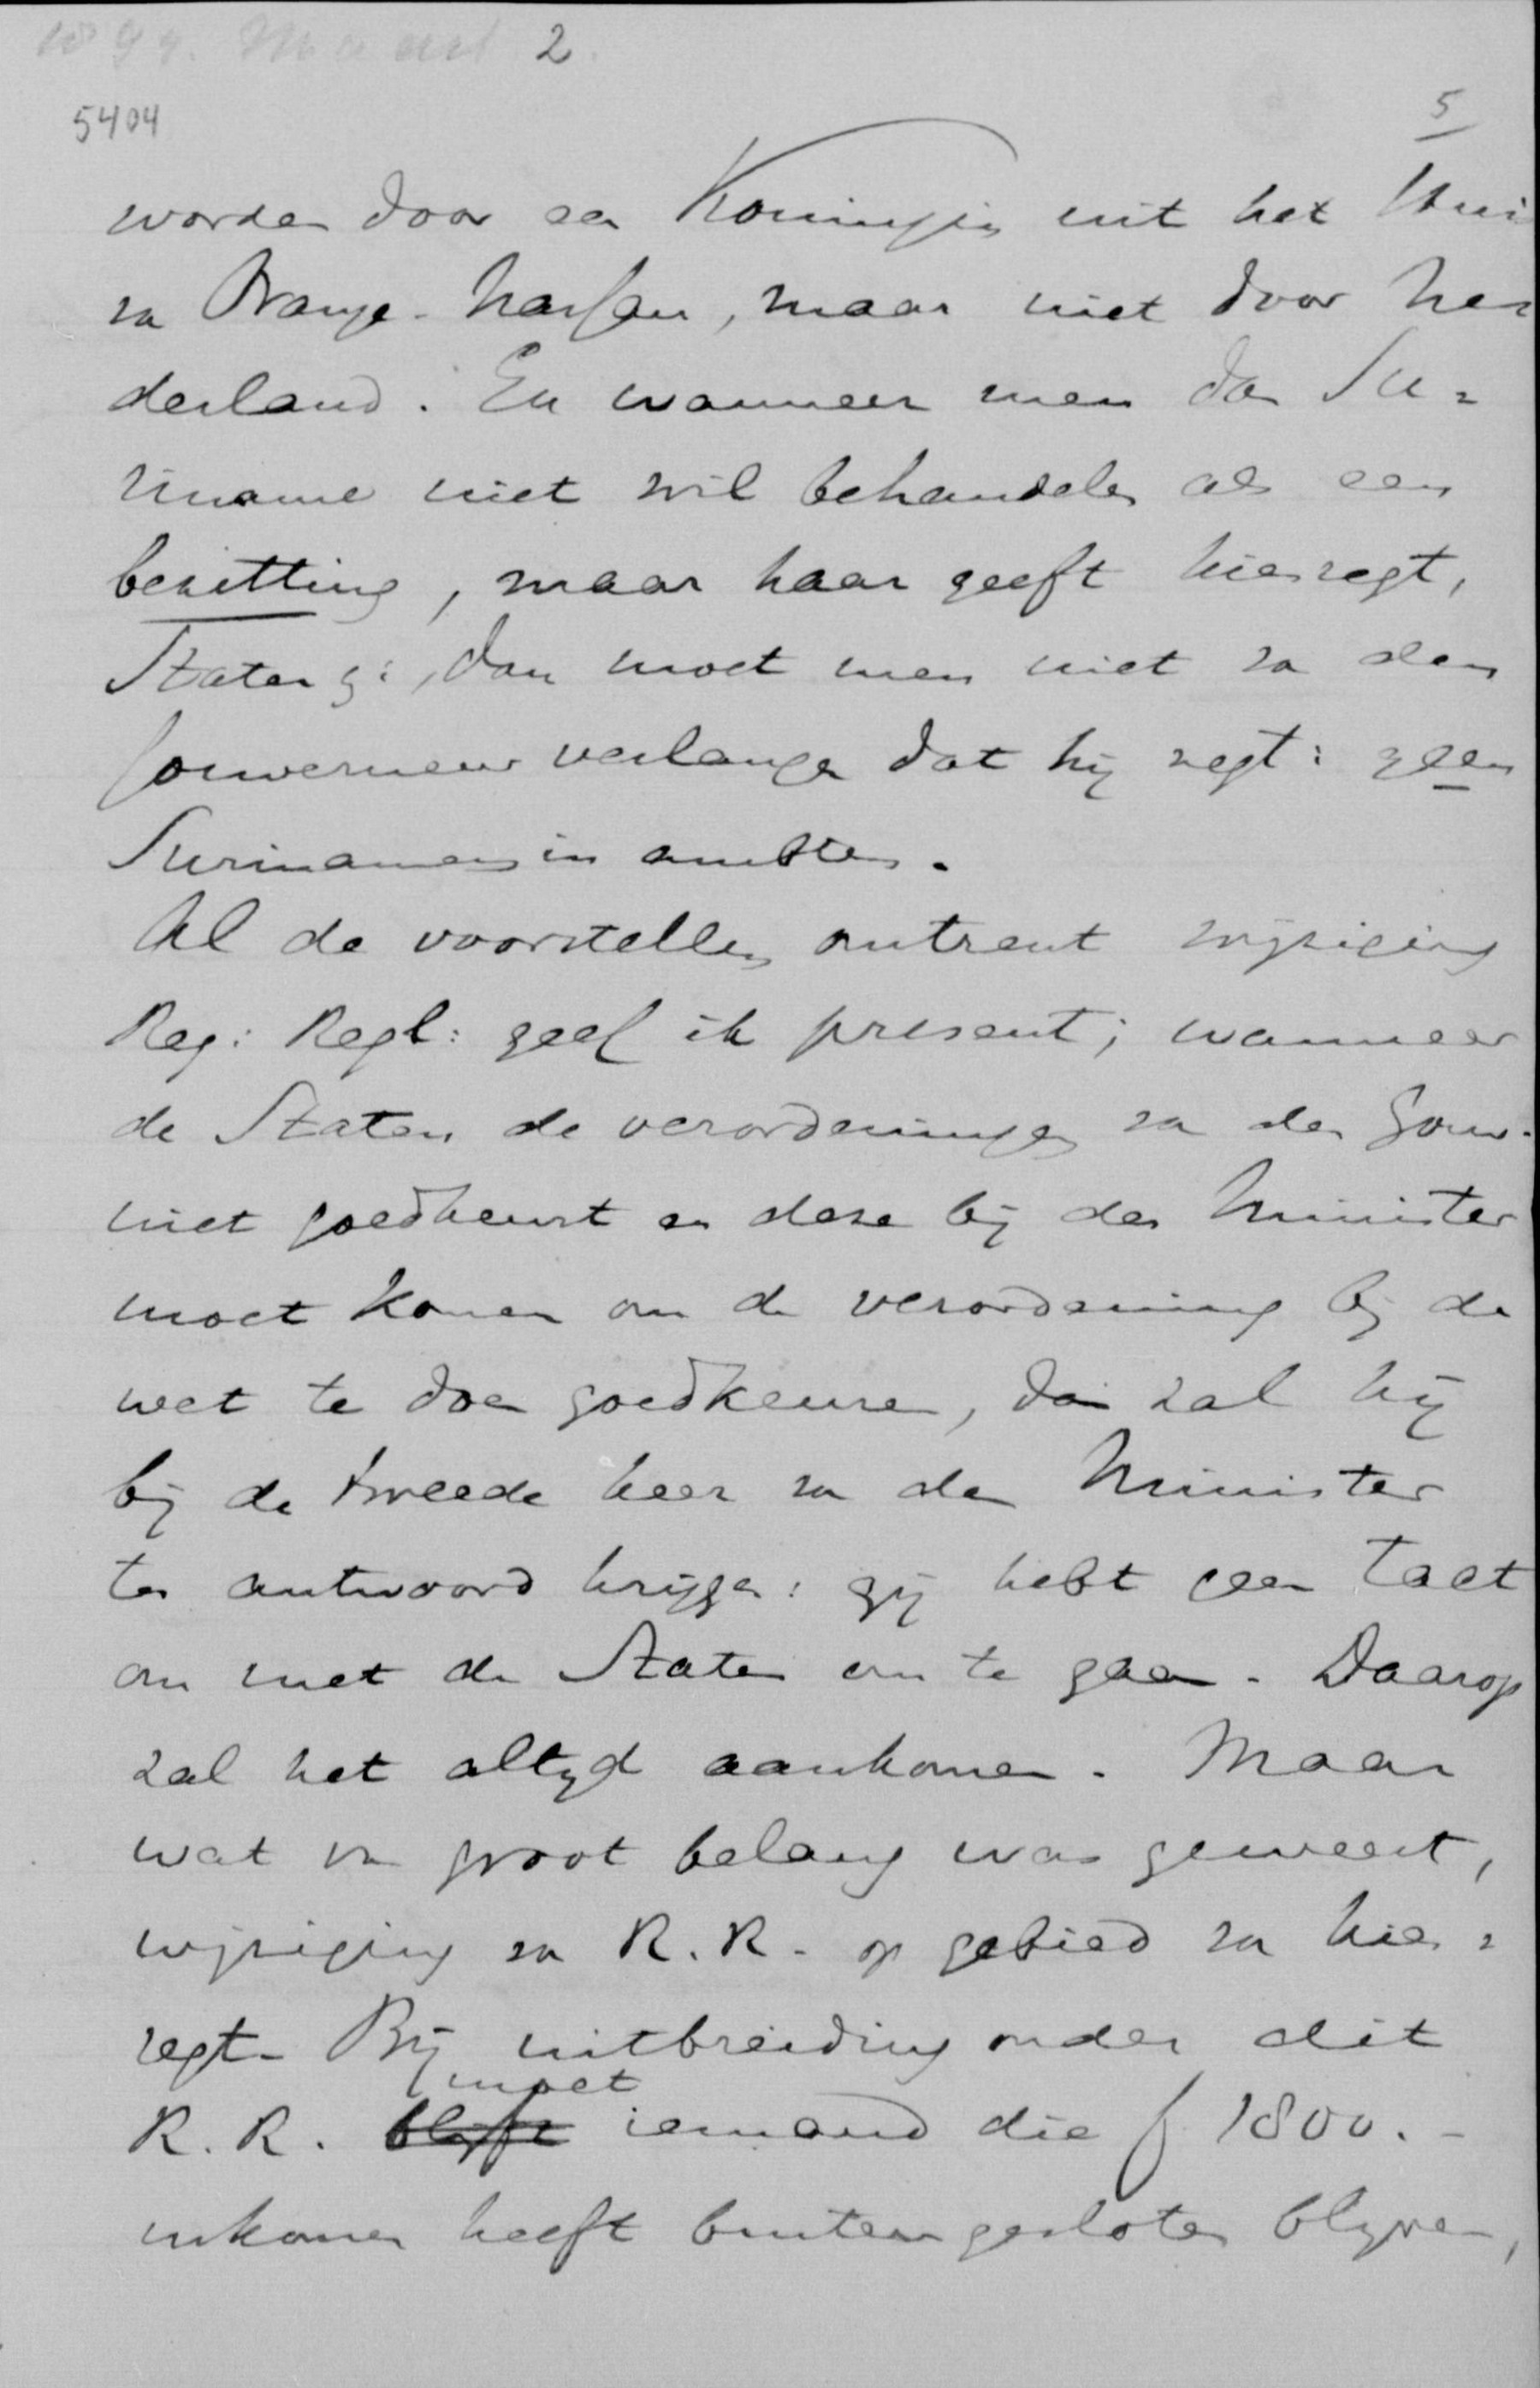 2
5404
5
worden door een Koningin uit het Huis
van Oranje-Nassau, maar niet door Ne
derland. En wanneer men dan Su=
riname niet wil behandelen als een
bezitting, maar haar geeft kiesregt,
Staten z:, dan moet men niet van den
Gouverneur verlangen dat hij zegt: geen
Surinamers in ambten.
Al de voorstellen omtrent wijziging
Reg: Regl: geef ik present; wanneer
de Staten de verordeningen van den Gouv.
niet goedkeurt en deze bij den Minister
moet komen om de verordening bij de
wet te doen goedkeuren, dan zal hij
bij de tweede keer van den Minister
ten antwoord krijgen: gij hebt geen tact
om met de Staten om te gaan. Daarop
zal het altyd aankomen. Maar
wat van groot belang was geweest,
wijziging van R.R. op gebied van kies=
regt. Bij uitbreiding onder dit
moet
R.R. blijft iemand die f 1800.-
inkomen heeft buitengesloten blyven,